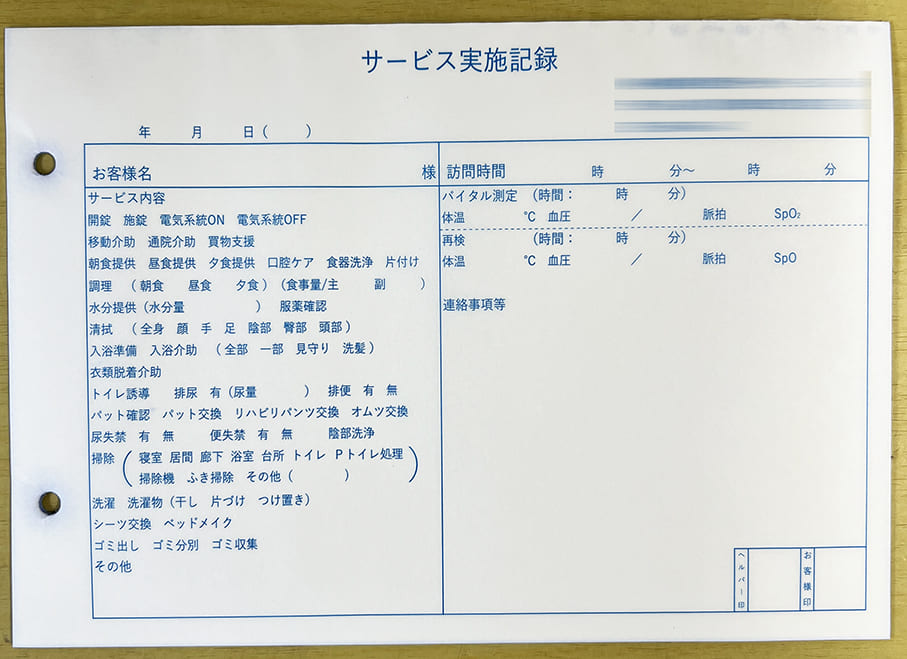 サービス実施記録
年 月 日( )
お客様名 様
訪問時間 時 分～ 時 分
サービス内容
開錠 施錠 電気系統ON 電気系統OFF
移動介助 通院介助 買物支援
朝食提供 昼食提供 夕食提供 口腔ケア 食器洗浄 片付け
調理 (朝食 昼食 夕食)(食事量/主 副 )
水分提供(水分量 ) 服薬確認
清拭 (全身 顔 手 足 陰部 臀部 頭部)
入浴準備 入浴介助 (全部 一部 見守り 洗髪)
衣類脱着介助
トイレ誘導 排尿 有(尿量 ) 排便 有 無
パット確認 パット交換 リハビリパンツ交換 オムツ交換
尿失禁 有 無 便失禁 有 無 陰部洗浄
掃除 (寝室 居間 廊下 浴室 台所 トイレ Pトイレ処理
掃除機 ふき掃除 その他( ) )
洗濯 洗濯物(干し 片づけ つけ置き)
シーツ交換 ベッドメイク
ゴミ出し ゴミ分別 ゴミ収集
その他
バイタル測定 (時間： 時 分)
体温 ℃ 血圧 ／ 脈拍 SpO₂
再検 (時間： 時 分)
体温 ℃ 血圧 ／ 脈拍 SpO
連絡事項等
ヘルパー印
お客様印